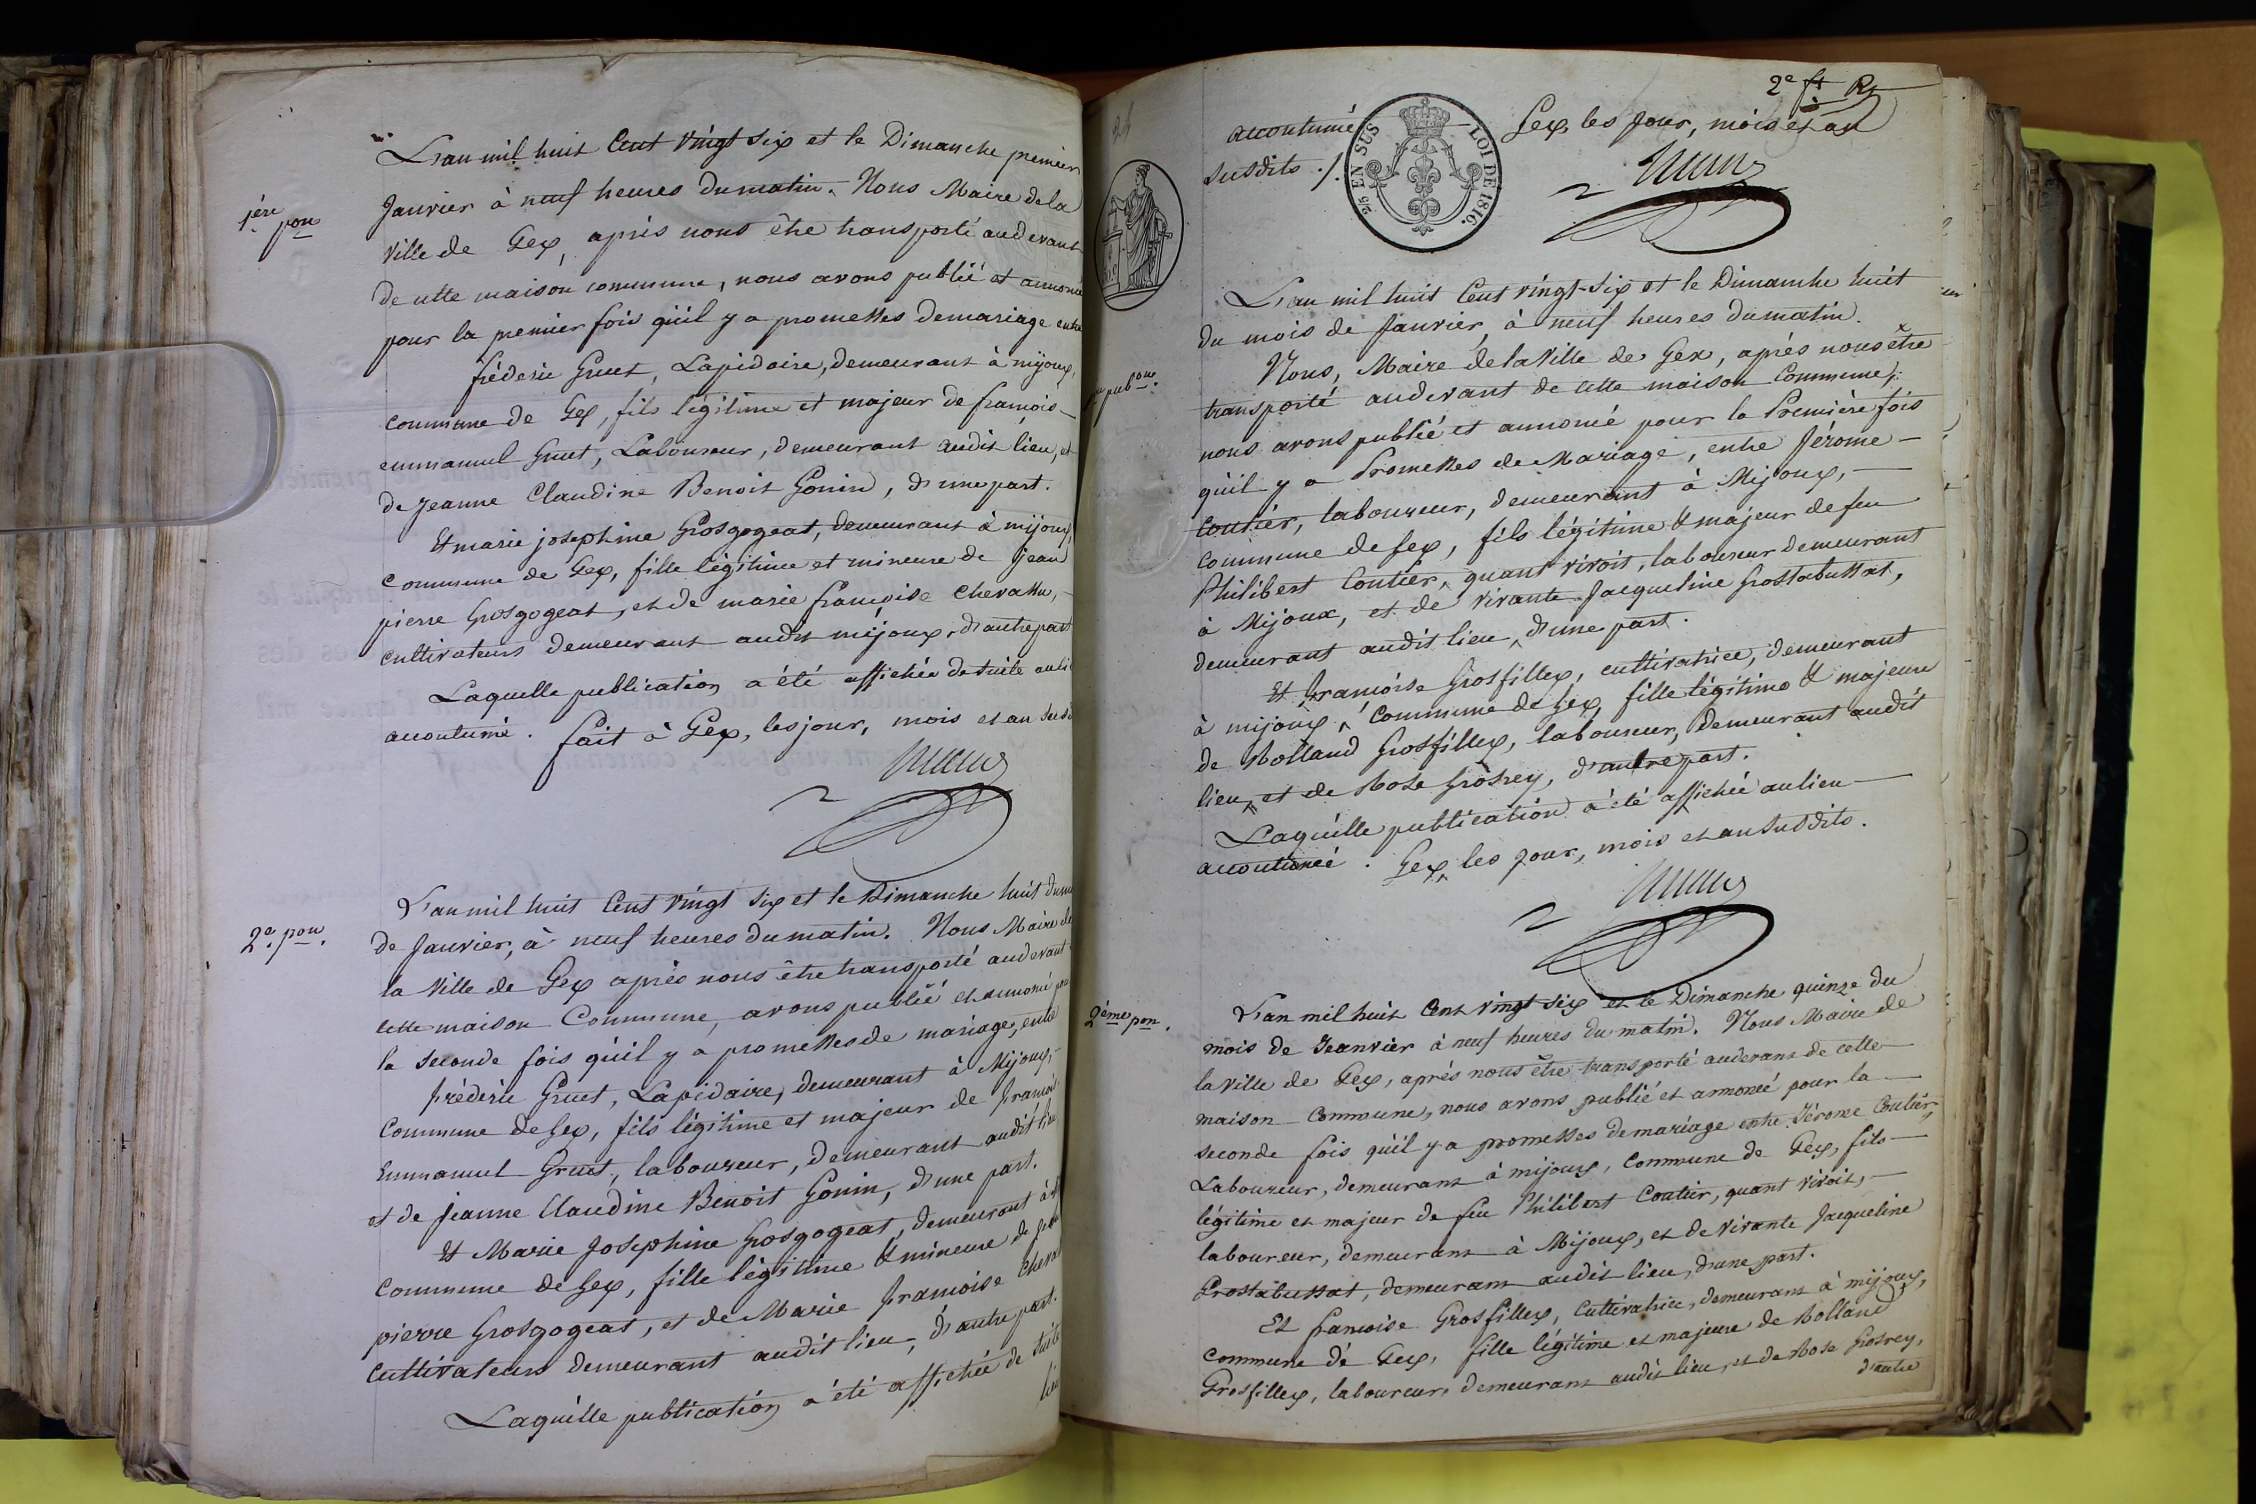 L'an mil huit Cent vingt six et le Dimanche premier
Janvier à neuf heures du matin. Nous Maire de la
1ère pon
ville de Gex, après nous être transporté audevant
de cette maison commune, nous avons publié et annoncé
pour la premier fois qu'il y a promesses de mariage entre
fréderic Gruet, Lapidaire, demeurant à mijoux,
commune de Gex, fils légitime et majeur de francois
emmanuel Gruet, Laboureur, demeurant audit lieu, et
de jeanne Claudine Benoit Gonin, d'une part.
Et marie josephine Grosgogeat, demeurant à mijoux,
commune de Gex, fille légitime et mineure de jean
pierre Grosgogeat, et de marie françoise chevassu,
cultivateurs demeurant audit mijoux, d'autre part
Laquelle publication a été affichée de suite au li
accoutumé. fait à Gex, les jour, mois et an susd
L'an mil huit Cent vingt six et le Dimanche huit du
2e. pon.
de Janvier, à neuf heures du matin. Nous Maire de
la ville de Gex après nous être transporté audevant
cette maison Commune, avons publié et annoncé pour
la seconde fois qu'il y a promesses de mariage, entre
fréderic Gruet, Lapidaire, demeurant à Mijoux,
Commune de Gex, fils légitime et majeur de francois
Emmanuel Gruet, laboureur, demeurant audit lieu
et de jeanne Claudine Benoit Gonin, d'une part.
Et Marie Josephine Grosgogeat, demeurant à
Commune de Gex, fille légitime & mineure de jean
pierre Grosgogeat, et de Marie francoise Cheva
Cultivateurs demeurant audit lieu, d'autre part.
Laquelle publication a été affichée de suite
lieu
2e ft
accoutumé Gex, les jour, mois et an
susdits ./.
2/5 EN SUS LOI DE 1816.
L'an mil huit Cent vingt-six et le Dimanche huit
du mois de Janvier, à neuf heures du matin.
Nous, Maire de la Ville de Gex, après nous être
pub.on
transporté audevant de cette maison Commune,
nous avons publié et annoncé pour la Première fois
qu'il y a Promesses de Mariage, entre Jérome
Coutier, laboureur, demeurant à Mijoux,
commune de Gex, fils légitime & majeur de feu
Philibert Coutier, quant vivoit, laboureur demeurant
à Mijoux, et de vivante Jacqueline Grostabussat,
demeurant audit lieu, d'une part.
Et françoise Grosfillex, cultivatrice, demeurant
à mijoux, Commune de Gex, fille légitime & majeure
de Rolland Grosfillex, laboureur, demeurant audit
lieu, et de Rose Grosrey, d'autre part.
Laquelle publication a été affichée au lieu
accoutumé. Gex, les jour, mois et an susdits.
L'an mil huit Cent vingt six et le Dimanche quinze du
2ème pon.
mois de Jeanvier à neuf heures du matin. Nous Maire de
la ville de Gex, après nous être transporté audevant de cette
maison Commune, nous avons publié et annoncé pour la
seconde fois qu'il y a promesses de mariage entre Jérome Coutier,
Laboureur, demeurant à mijoux, Commune de Gex, fils
légitime et majeur de feu Philibert Coutier, quant vivoit,
laboureur, demeurant à Mijoux, et de vivante Jacqueline
Grostabussat, demeurant audit lieu, d'une part.
Et francoise Grosfillex, Cultivatrice, demeurant à mijoux,
commune de Gex, fille légitime et majeure de Rolland
Grosfillex, laboureur, demeurant audit lieu, et de Rose Grosrey,
d'autre